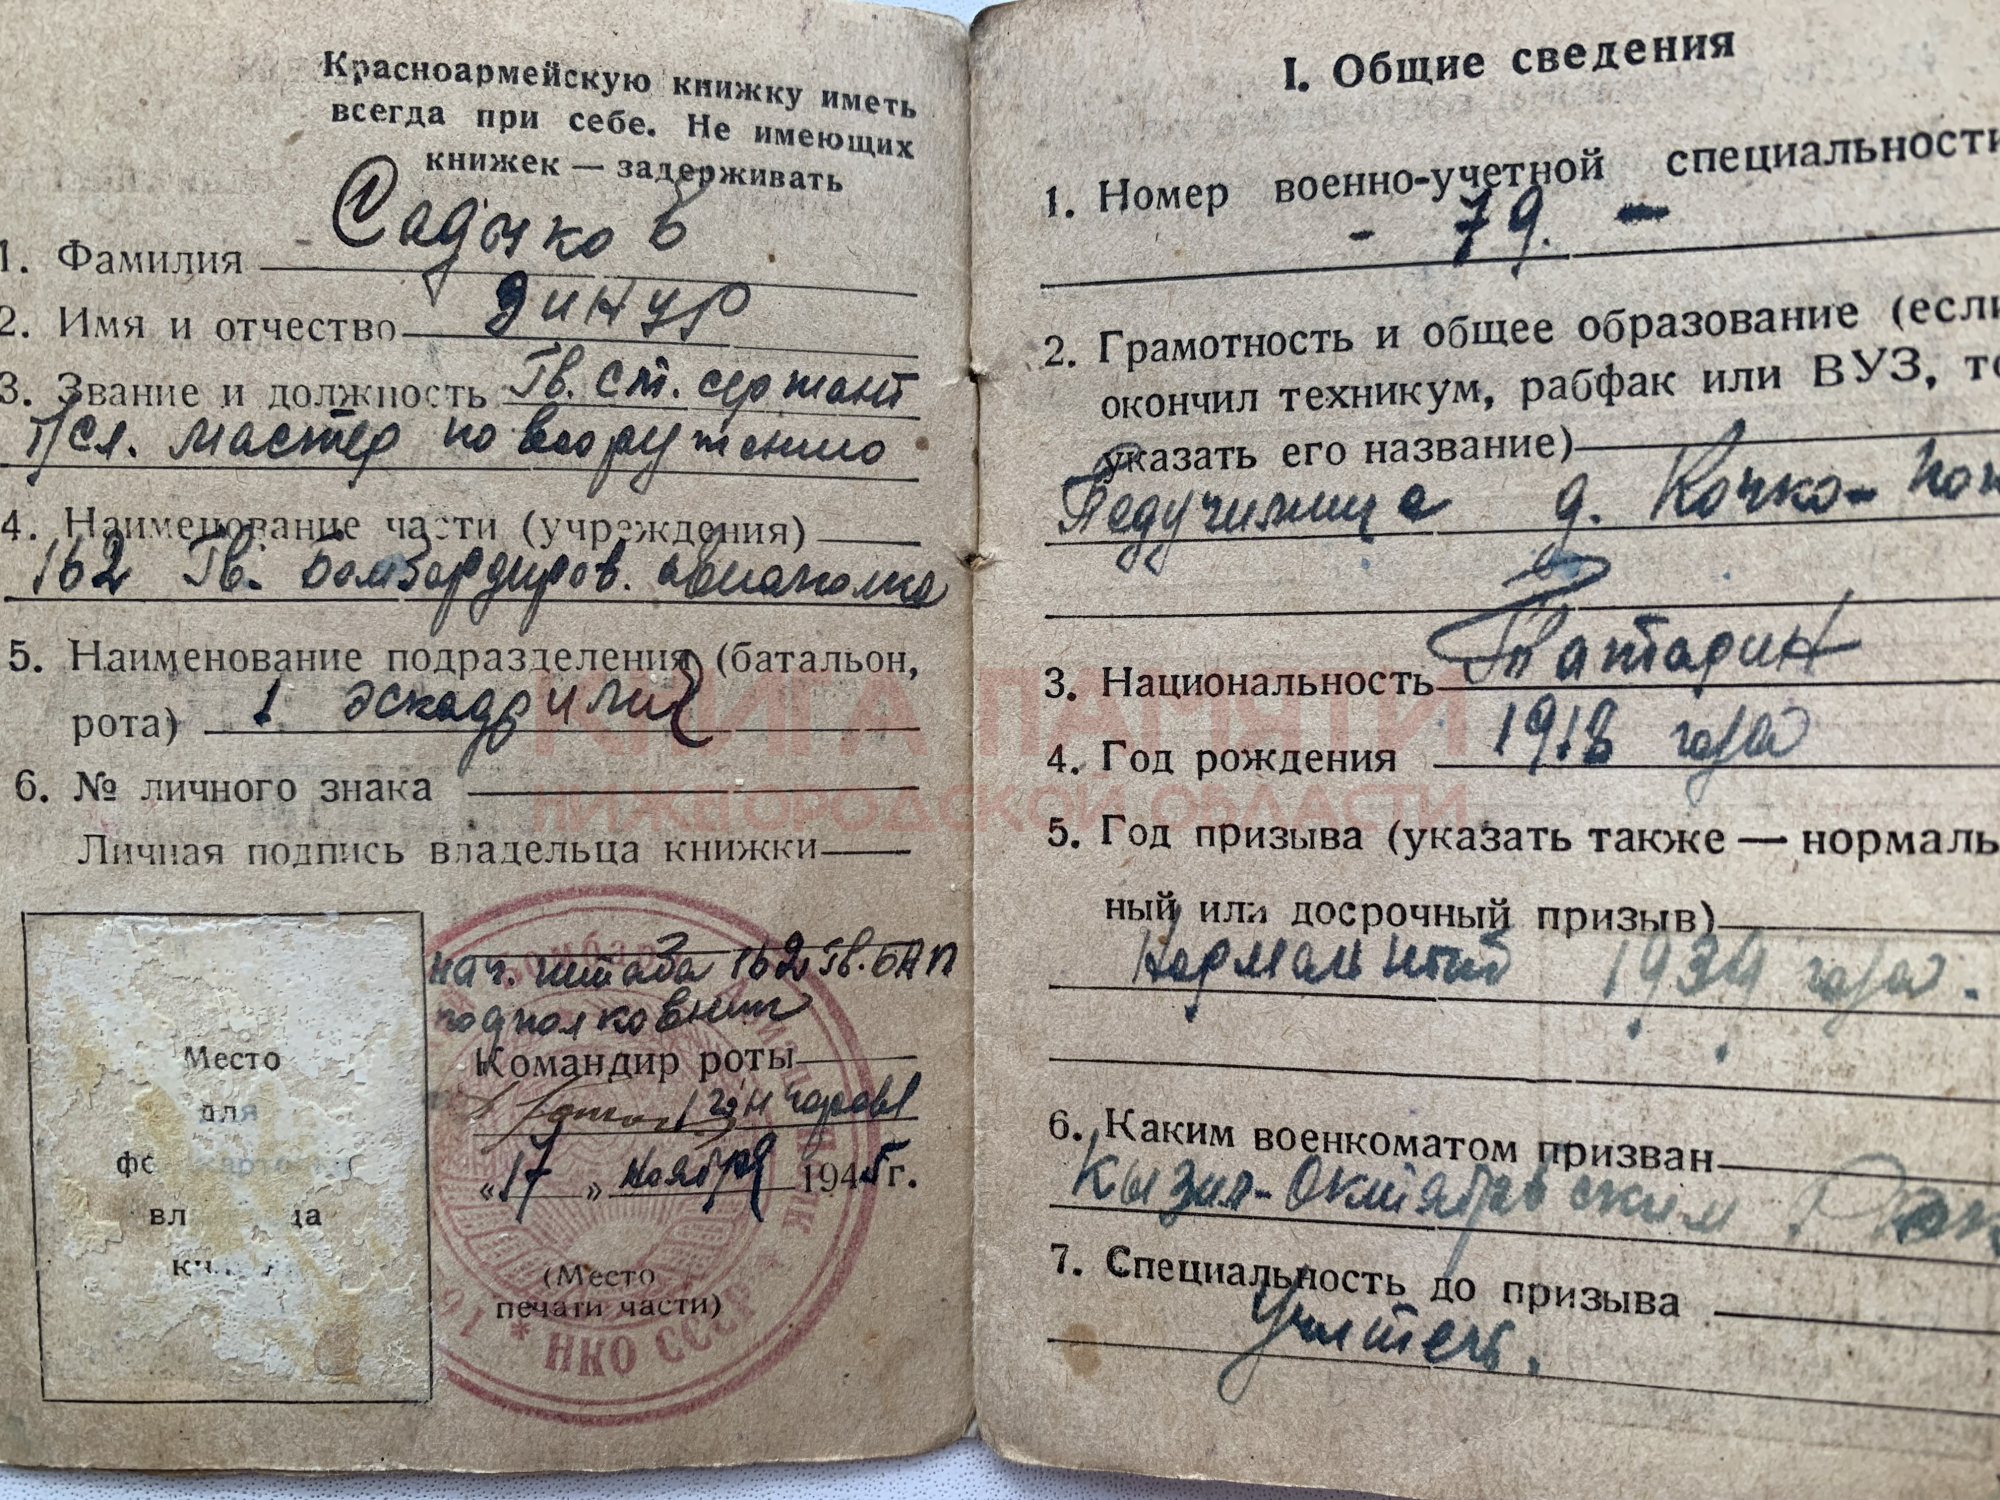 Красноармейскую книжку иметь
всегда при себе. Не имеющих
книжек — задерживать
1. Фамилия Садыков
2. Имя и отчество Динур
3. Звание и должность Гв. ст. сержант
мастер по вооружению
4. Наименование части (учреждения)
162 Гв. Бомбардиров. авиаполка
5. Наименование подразделения (батальон,
рота) 1 эскадрилия
6. № личного знака
Личная подпись владельца книжки
нач. штаба 162 Гв. БАП
подполковник
Командир роты
Гончаров
«17» ноября 1945 г.
(Место
печати части)
НКО СССР
Место
для
вл ца
I. Общие сведения
1. Номер военно-учетной специальности
- 79. -
2. Грамотность и общее образование (если
окончил техникум, рабфак или ВУЗ, то
указать его название)
Педучилище д. Кочко-Пож
3. Национальность Татарин
4. Год рождения 1918 года
5. Год призыва (указать также — нормаль-
ный или досрочный призыв)
Нормальный 1939 года.
6. Каким военкоматом призван
Кзыл-Октябрьским
7. Специальность до призыва
Учитель.
КНИГА ПАМЯТИ
НИЖЕГОРОДСКОЙ ОБЛАСТИ